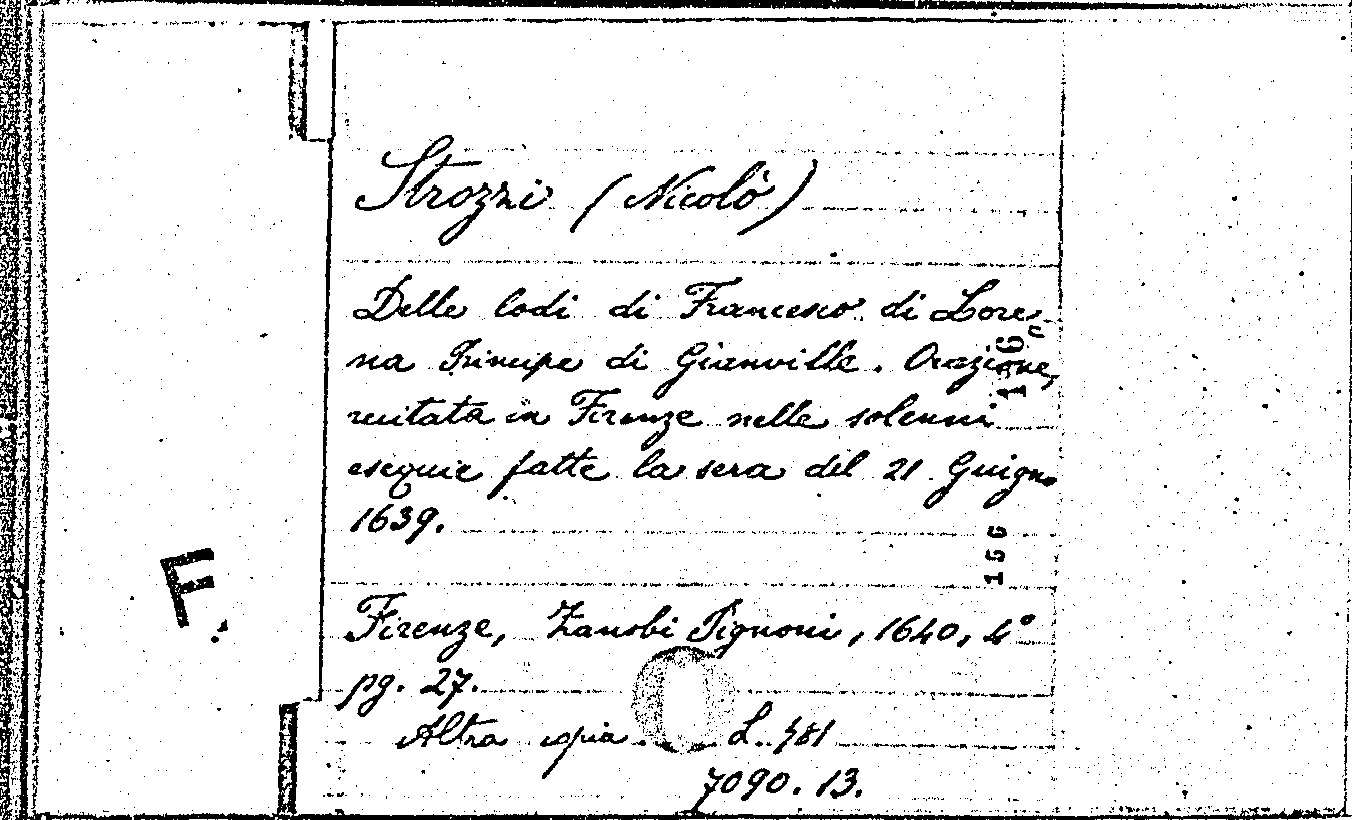 Strozzi (Nicolò)
Delle lodi di Francesco di Lore-
na Principe di Gianville. Orazione,
recitata in Firenze nelle solenni
esequie fatte la sera del 21 Guigno
1639.
156
F.
Firenze, Zanobi Pignoni, 1640, 4°
pg. 27.
Altra copia.
7090.13.